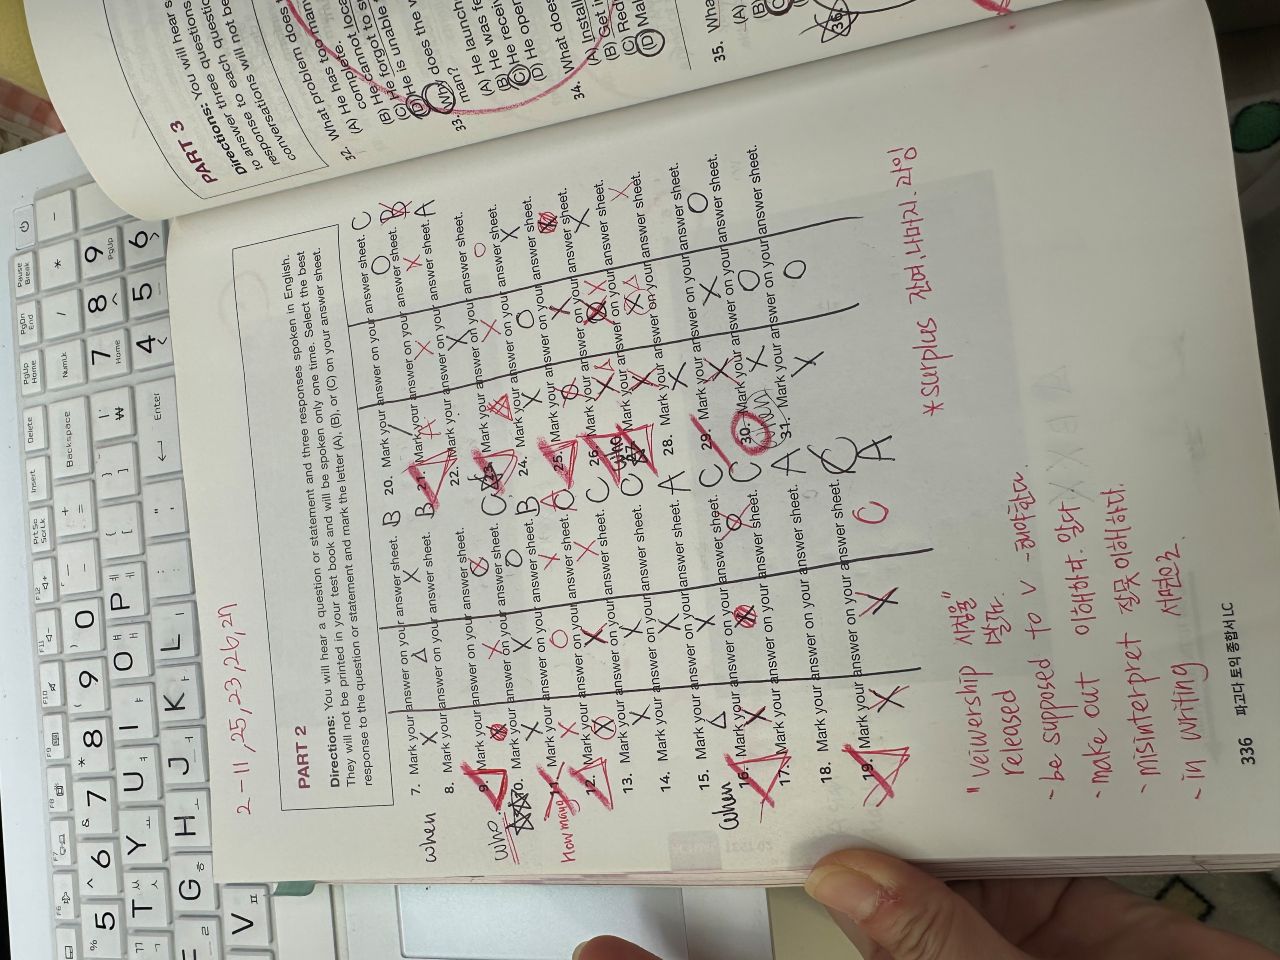 2-11, 25, 23, 26, 27
PART 2
Directions: You will hear a question or statement and three responses spoken in English.
They will not be printed in your test book and will be spoken only one time. Select the best
response to the question or statement and mark the letter (A), (B), or (C) on your answer sheet.
7. Mark your answer on your answer sheet. B
When
8. Mark your answer on your answer sheet. B
9. Mark your answer on your answer sheet. C
Who
10. Mark your answer on your answer sheet. B
11. Mark your answer on your answer sheet. A
How many
12. Mark your answer on your answer sheet. C
13. Mark your answer on your answer sheet. C
14. Mark your answer on your answer sheet. A
15. Mark your answer on your answer sheet. C
When
16. Mark your answer on your answer sheet. C
17. Mark your answer on your answer sheet. A
18. Mark your answer on your answer sheet. C
19. Mark your answer on your answer sheet. C A
20. Mark your answer on your answer sheet. C
21. Mark your answer on your answer sheet. B
22. Mark your answer on your answer sheet. A
23. Mark your answer on your answer sheet.
24. Mark your answer on your answer sheet.
25. Mark your answer on your answer sheet.
26. Mark your answer on your answer sheet.
Who
27. Mark your answer on your answer sheet.
28. Mark your answer on your answer sheet.
29. Mark your answer on your answer sheet.
30. Mark your answer on your answer sheet.
31. Mark your answer on your answer sheet.
*surplus 잔여, 나머지. 과잉
"veiwership 시청율"
released 발표.
- be supposed to v ~해야한다.
- make out 이해하다. 알다
- misinterpret 잘못 이해하다.
- in writing 서면으로.
336 파고다 토익 종합서 LC
PART 3
Directions: You will hear s
to answer three questions
response to each questio
conversations will not be
32. What problem does t
(A) He has too man
complete.
(B) He cannot loca
(C) He forgot to s
(D) He is unable
33. Why does the w
man?
(A) He launch
(B) He was fe
(C) He receiv
(D) He open
34. What does
(A) Install
(B) Get in
(C) Red
(D) Mak
35. Wha
(A)
(B)
36.
Pause
Break
PgDn
End
PgUp
Home
Delete
Insert
PrtSc
ScrLk
F12
F11
F10
F9
F8
F7
F6
NumLk
/
*
-
Backspace
7 Home
8
9 PgUp
4
5
6
Enter
% 5
^ 6
& 7
* 8
( 9
) 0
T ㅅ ㄲ
Y ㅛ
U ㅕ
I ㅑ
O ㅐ ㅒ
P ㅔ ㅖ
G ㅎ
H ㅗ
J ㅓ
K ㅏ
L ㅣ
V ㅍ